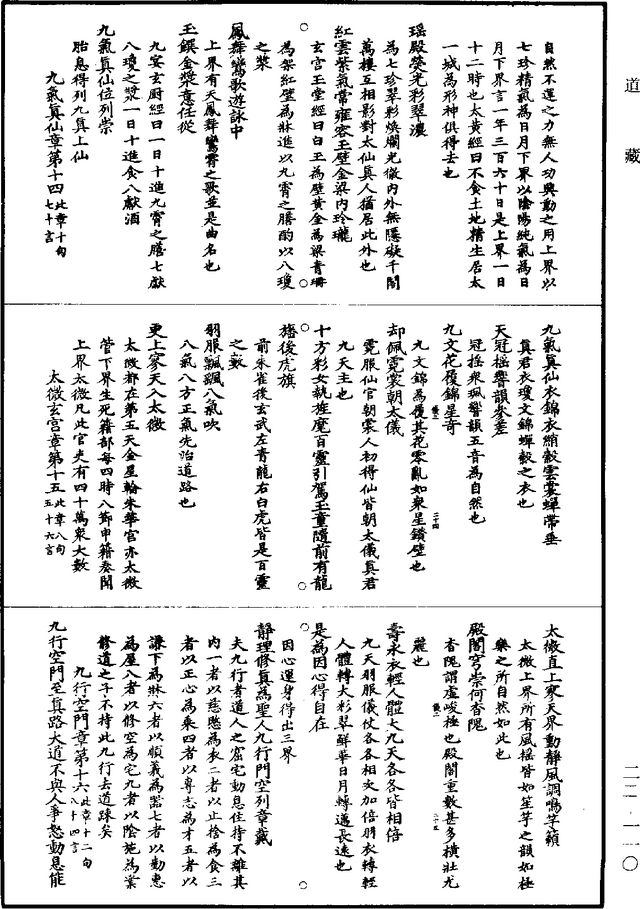 道藏
自然不運之力無人功與動之用上界以
七珍精氣為日月下界以陰陽純氣為日
月下界言一年三百六十日是上界一日
十二時也太黃經曰不食土地精生居太
一城為形神俱得去也
瑶殿熒光彩翠濃
為七珍翠彩煥爛光徹內外無隱礙千閣
萬樓互相影對太仙真人猶居此外也
紅雲紫氣常雍容玉壁金梁內玲瓏
玄宫玉堂經曰白玉為壁黃金為梁青珊
為架紅壁為牀進以九霄之膳酌以八瓊
之漿
鳳舞鸞歌遊詠中
上界有天鳳舞鸞霄之歌並是曲名也
玉饌金漿意任從
九安玄厨經曰一日十進九霄之膳七獻
八瓊之漿一日十進食八獻酒
九氣真仙位列崇
胎息得列九真上仙
九氣真仙章第十四此章十句七十言
九氣真仙衣錦衣綃縠雲裳蟬帶垂
真君衣瓊文錦蟬縠之衣也
天冠摇響韻參差
冠摇飛珮響韻五音為自然也
九文花履錦星奇
九文錦為履其花零亂如衆星鑽壁也
却佩霓裳朝太儀
霓服仙官朝裳人初得仙皆朝太儀真君
九天主也
十方彩女執旌麾百靈引駕玉童隨前有龍
旛後虎旗
前朱雀後玄武左青龍右白虎皆是百靈
之數
羽服飄飖八氣吹
八氣八方正氣先治道路也
更上寥天入太微
太微都在第五天金星輪朱華宫亦太微
管下界生死籍部每四時八節申籍奏聞
上界太微凡此官吏有四十萬衆大數
太微玄宫章第十五此章八句五十六言
太微直上寥天界動靜風調鳴竽籟
太微上界所有風摇皆如笙竽之韻如極
樂之所自然如此也
殿閣穹崇何杳隗
杳隗謂虛峻極也殿閣重數甚多橫壯尤
麗也
壽永衣輕人體大九天各各皆相倍
九天羽服儀仗各各相次加倍羽衣轉輕
人體轉大彩翠鮮華日月轉邁長遠也
是為因心得自在
因心運身得出三界
靜理修真為聖人九行門空列章戴
夫九行者道人之窟宅動息住持不離其
内一者以慈愍為衣二者以止捨為食三
者以正心為乘四者以專志為才五者以
謙下為牀六者以順義為器七者以勤惠
為屋八者以修空為宅九者以陰施為業
修道之子不持此九行去道疎矣
九行空門章第十六此章十二句八十四言
九行空門至真路大道不與人爭怒動息能
二二·一一〇